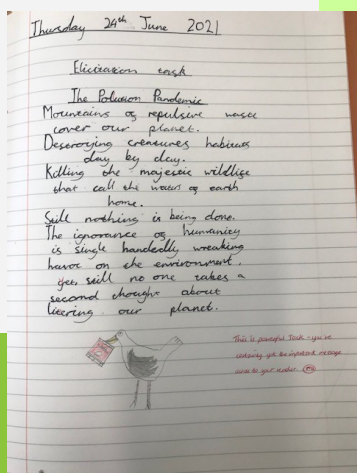 Thursday 24th June 2021
Elicitation task
The Polution Pandemic
Mountains of repulsive waste
cover our planet.
Destroying creatures habitats
day by day.
Killing the majestic wildlife
that call the waters of earth
home.
Still nothing is being done.
The ignorance of humanity
is single handedly wreaking
havoc on the environment.
Yet, still no one takes a
second thought about
litering our planet.
This is powerful - you've
certainly got the important message
across to your reader.